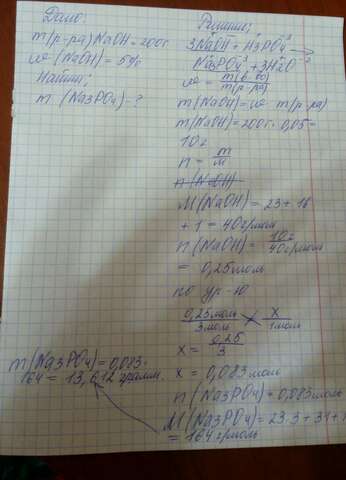 Дано:
m(р-ра)NaOH=200г
ω(NaOH)=5%
Найти:
m (Na3PO4)-?
Решение:
3NaOH + H3PO4 →
Na3PO4 + 3H2O
ω = m(в-во)/m(р-ра)
m(NaOH)=ω·m(р-ра)
m(NaOH)=200г·0,05=
10г
n = m/M
n(NaOH)
M(NaOH)=23+16
+1=40г/моль
n(NaOH)=10г/40г/моль
= 0,25моль
по ур-ю
0,25моль/3моль x/1моль
x = 0,25/3
x = 0,083моль
n(Na3PO4)=0,083моль
M(Na3PO4)=23·3+31+
=164г/моль
m(Na3PO4)=0,083·
164=13,612грамм.